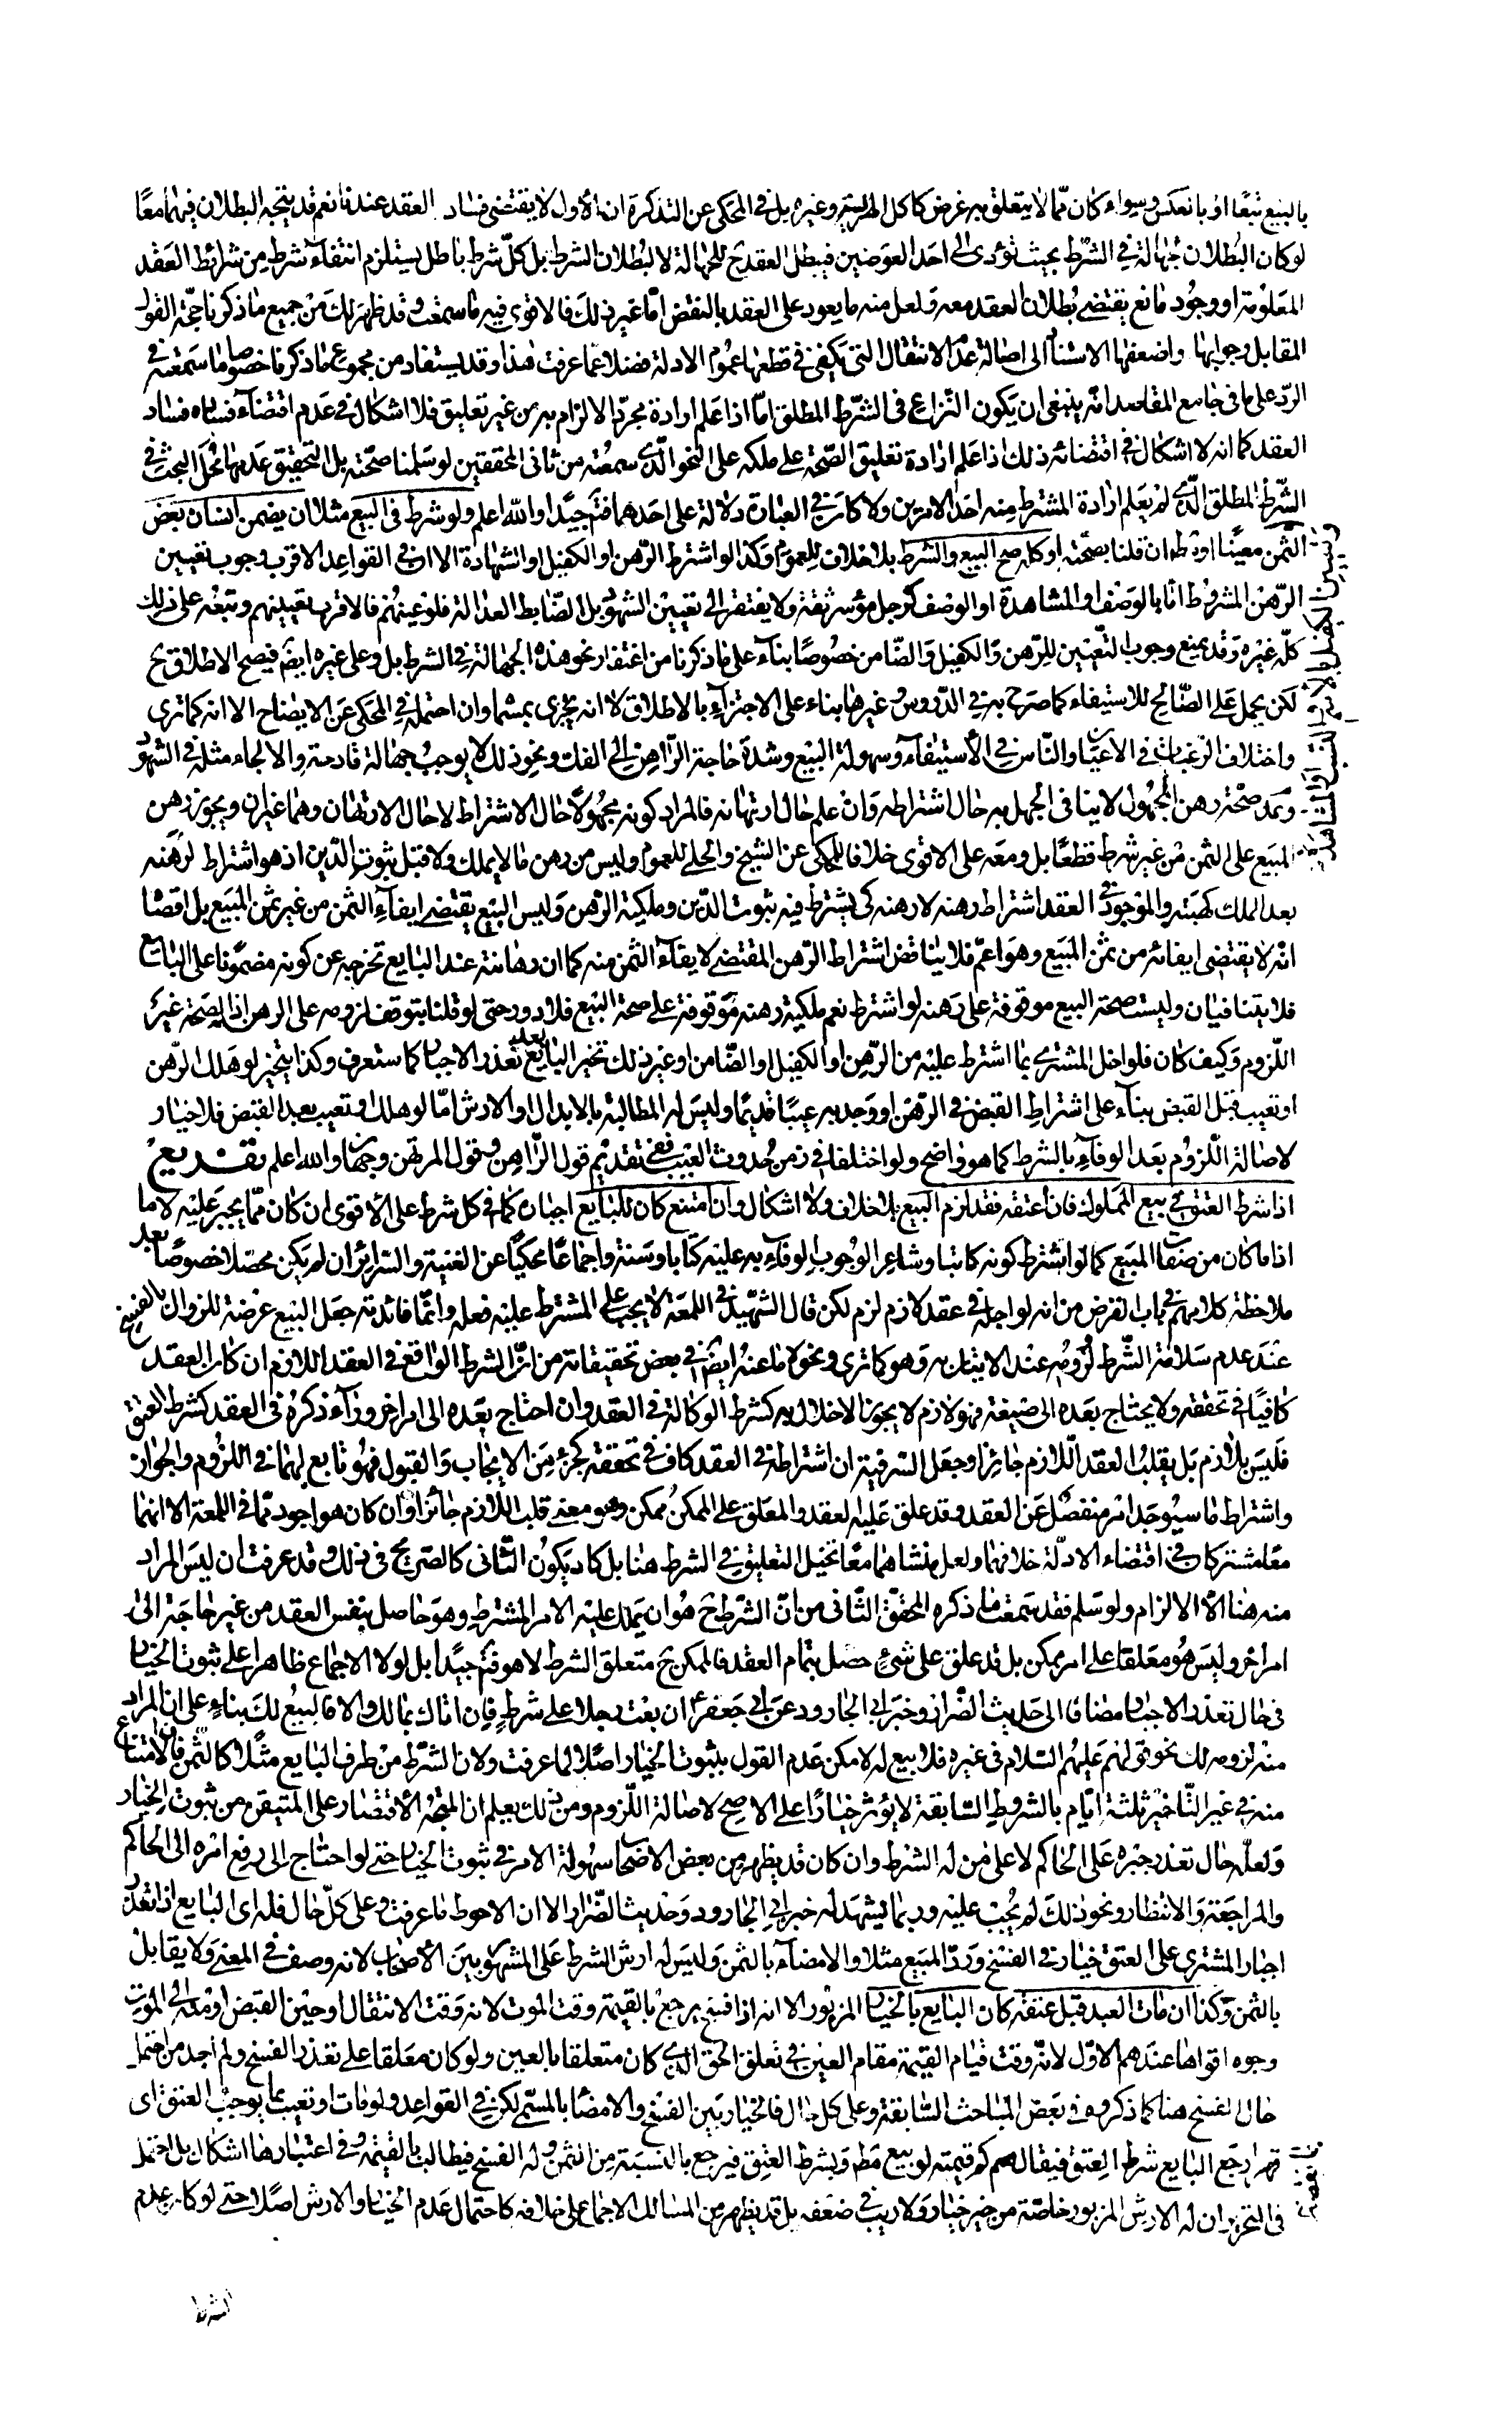 بالبيع تبعًا او بالعكس وسواء كان ممّا لا يتعلق به غرض كاكل الهريسة وغيره بل في المحكى عن التذكرة ان الأول لا يقتضى فساد العقد عندنا نعم قد يتجه البطلان فيهما معًا
لو كان البطلان لجهالة في الشرط بحيث تؤدى الى احد العوضين فيبطل العقد ح للجهالة لا لبطلان الشرط بل كلّ شرط باطل يستلزم انتفاء شرط من شرائط العقد
المعلومة او وجود مانع يقتضى بطلان العقد معه ولعل منه ما يعود على العقد بالنقض امّا غير ذلك فالاقوى فيه ما سمعت وقد ظهر لك من جميع ما ذكرنا حجّة القول
المقابل وجوابها واضعفها الاستناد الى اصالة عدم الانتقال التي يكفى في قطعها عموم الادلة فضلا عمّا عرفت هذا وقد يستفاد من مجموع ما ذكرنا خصوصا ما سمعته في
الردّ على ما في جامع المقاصد انّه ينبغى ان يكون النزاع في الشرط المطلق امّا اذا علم ارادة مجرّد الالزام به من غير تعليق فلا اشكال في عدم اقتضاء فساده فساد
العقد كما انه لا اشكال في اقتضائه ذلك اذا علم ارادة تعليق الصّحة على ملكه على النحو الّذى سمعته من ثانى المحققين لو سلمنا صحّته بل التحقيق عدمها فمحل البحث في
الشرط المطلق الّذى لم يعلم ارادة المشترط منه احد الامرين ولا كان في العبارة دلالة على احدهما فتأمّل جيّدا والله اعلم ولو شرط في البيع مثلا ان يضمن انسان بعض
الثمن معيّنا او مط ان قلنا بصحّته او كله صح البيع والشرط بلا خلاف للعموم وكذا لو اشترط الرّهن او الكفيل او الشهادة الا ان في القواعد الاقرب وجوب تعيين
الرّهن المشروط امّا بالوصف او المشاهدة او الوصف كرجل موسر ثقة ولا يفتقر الى تعيين الشهود بل الضّابط العدالة فلو عينهم فالاقرب تعيينهم وتبعه على ذلك
كلّه غيره وقد يمنع وجوب التّعيين للرّهن والكفيل والضّامن خصوصًا بناء على ما ذكرنا من اغتفار نحو هذه الجهالة في الشرط بل وعلى غيره ايضم فيصح الاطلاق ح
لكن يحمل على الصّالح للاستيفاء كما صرح به في الدّروس وغيرها بناء على الاجتزاء بالاطلاق لا انه يجزى بمسماه وان احتمله في المحكى عن الايضاح الا انه كما ترى
واختلاف الرّغبات في الاعيان والنّاس في الأستيفاء وسهولة البيع وشدة حاجة الرّاهن الى الفك ونحو ذلك لا يوجب جهالة قادحة والا لجاء مثله في الشهود
صحّة رهن المجهول لا ينافى الجهل به حال اشتراطه وان علم حال ارتهانه فالمراد كونه مجهولًا حال الاشتراط لا حال الارتهان وهما غيران ويجوز رهن
المبيع على الثمن من غير شرط قطعًا بل ومعه على الاقوى خلافا للمحكى عن الشيخ والحلى للعموم وليس من رهن ما لا يملك ولا قبل ثبوت الدّين اذ هو اشتراط لرهنه
بعد الملك كهبته والموجود في العقد اشتراط رهنه لا رهنه كى يشترط فيه ثبوت الدّين وملكية الرّهن وليس البيع يقتضى ايفاء الثمن من غير ثمن المبيع بل اقصاه
انّه لا يقتضى ايفائه من ثمن المبيع وهو اعمّ فلا يناقض اشتراط الرّهن المقتضى لايفاء الثمن منه كما ان رهانته عند البايع تخرجه عن كونه مضمونا على البايع
فلا يتنافيان وليست صحة البيع موقوفة على رهنه لو اشترط نعم ملكية رهنه موقوفة على صحة البيع فلا دور حتى لو قلنا بتوقف لزومه على الرهن اذ الصحة غير
اللّزوم وكيف كان فلو اخل المشترى بما اشترط عليه من الرّهن او الكفيل او الضّامن او غير ذلك تخير البايع بعد تعذر الاجبار كما ستعرف وكذا يتخير لو هلك الرّهن
او تعيب قبل القبض بناء على اشتراط القبض في الرّهن او وجد به عيبًا قديمًا وليس له المطالبة بالابدال او الارش امّا لو هلك او تعيب بعد القبض فلا خيار
لاصالة اللّزوم بعد الوفاء بالشرط كما هو واضح ولو اختلفا في زمن حدوث العيب ففي تقديم قول الرّاهن وقول المرتهن وجهان والله اعلم تفريع
اذا شرط العتق في بيع المملوك فان اعتقه فقد لزم البيع بلا خلاف ولا اشكال وان امتنع كان للبايع اجباره كما في كل شرط على الأقوى ان كان ممّا يجبر عليه لا ما
اذا ما كان من صفات المبيع كما لو اشترط كونه كاتبا او شاعرا لوجوب الوفاء به عليه كتابا وسنة واجماعًا محكيًا عن الغنية والسرائر ان لم يكن محصّلا خصوصًا بعد
ملاحظة كلامهم في باب القرض من انه لو اجله في عقد لازم لزم لكن قال الشهيد في اللمعة لا يجب على المشترط عليه فعله وانّما فائدته جعل البيع عرضة للزوال بالفسخ
عند عدم سلامة الشّرط لزومه عند الاتيان به وهو كما ترى ونحوه ما عنه ايضم في بعض تحقيقاته من انّ الشرط الواقع في العقد اللازم ان كان العقد
كافيًا في تحققه ولا يحتاج بعده الى صيغة فهو لازم لا يجوز الاخلال به كشرط الوكالة في العقد وان احتاج بعده الى امر اخر وراء ذكره في العقد كشرط العتق
فليس بلازم بل يقلب العقد اللّازم جائزا وجعل السّر فيه ان اشتراطه في العقد كاف في تحققه كجزء من الايجاب والقبول فهو تابع لهما في اللّزوم والجواز
واشتراط ما سيوجد امر منفصل عن العقد وقد علق عليه العقد والمعلق على الممكن ممكن وهو معنى قلب اللازم جائزا وان كان هو اجود ممّا في اللمعة الا انهما
معًا مشتركان في اقتضاء الادلّة خلافهما ولعل منشاهما معًا تخيل التعليق في الشرط هنا بل كاد يكون الثّانى كالصّريح في ذلك وقد عرفت ان ليس المراد
منه هنا الا الالزام ولو سلم فقد سمعت ما ذكره المحقق الثّانى من انّ الشّرط ح هو ان يملك عليه الامر المشترط وهو حاصل بنفس العقد من غير حاجة الى
امر اخر وليس هو معلقا على امر ممكن بل قد علق على شىء حصل بتمام العقد فالممكن ح متعلق الشرط لا هو فتأمّل جيّدا بل لولا الاجماع ظاهرا على ثبوت الخيار
في حال تعذر الاجبار مضافا الى حديث الضّرار وخبر ابى الجارود عن ابى جعفر ع ان بعت رجلا على شرط فان اتاك بمالك والا فالبيع لك بناء على ان المراد
منه لزومه لك نحو قولهم عليهم السّلام في غيره فلا بيع له لامكن عدم القول بثبوت الخيار اصلًا لما عرفت ولان الشّرط من طرف البايع مثلًا كالثمن فالامتناع
منه في غير التّاخير ثلثة ايّام بالشروط السّابقة لا يؤثر خيارًا على الاصح لاصالة اللّزوم ومن ذلك يعلم ان المتجه الأقتصار على المتيقن من ثبوت الخيار
ولعلّه حال تعذر جبره على الحاكم لا على من له الشرط وان كان قد يظهر من بعض الاصحاب سهولة الامر في ثبوت الخيار حتى لو احتاج الى رفع امره الى الحاكم
والمراجعة والانتظار ونحو ذلك لم يجب عليه وربما يشهد له خبر ابى الجارود وحديث الضّرار الا ان الاحوط ما عرفت وعلى كلّ حال فله اى البايع اذا تعذر
اجبار المشترى على العتق خيار في الفسخ وردّ المبيع مثلا والامضاء بالثمن وليس له ارش الشرط على المشهور بين الأصحاب لانه وصف في المعنى ولا يقابل
بالثمن وكذا ان مات العبد قبل عتقه كان البايع بالخيار المزبور الا انه اذا فسخ يرجع بالقيمة وقت الموت لانه وقت الانتقال او حين القبض او منه الى الموت
وجوه اقواها عندهم الاوّل لانّه وقت قيام القيمة مقام العين في تعلق الحق الذى كان متعلقا بالعين ولو كان معلقا على تعذر الفسخ ولم اجد من احتمل
حال الفسخ هنا كما ذكروه في بعض المباحث السّابقة وعلى كل حال فالخيار بين الفسخ والامضاء بالمسمّى لكن في القواعد ولو مات او تعيب بما يوجب العتق اى
قهرا رجع البايع شرط العتق فيقال كم قيمته لو بيع مط وبشرط العتق فيرجع بالنسبة من الثمن وله الفسخ فيطالب بالقيمة وفى اعتبارها اشكال بل احتمل
في التحرير ان له الارش المزبور خاصّة من غير خيار ولا ريب في ضعفه بل قد يظهر من المسالك الاجماع على خلافه كاحتمال عدم الخيار والارش اصلًا حتى لو كان عدم
الشرط